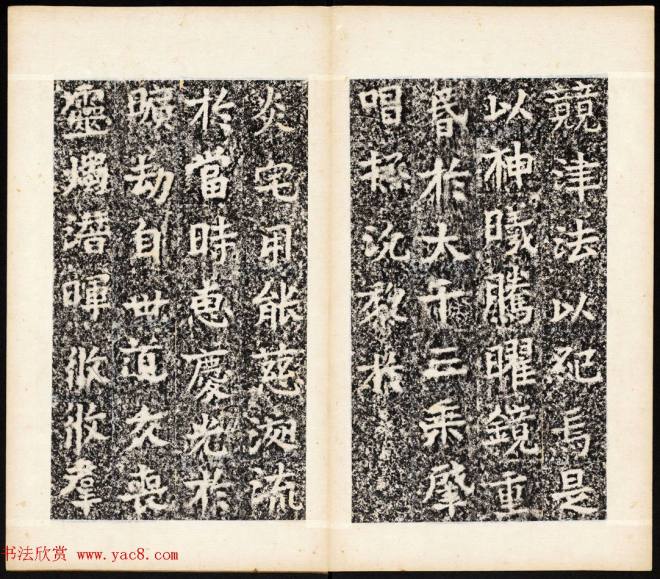 競津法以焉是
以神曦騰曜鏡重
昏於大千三乘肇
唱拯沉救於
炎宅用能慈流
於當時惠慶光於
曠劫自世道交喪
靈燭潛暉攸攸羣
书法欣赏 www.yac8.com